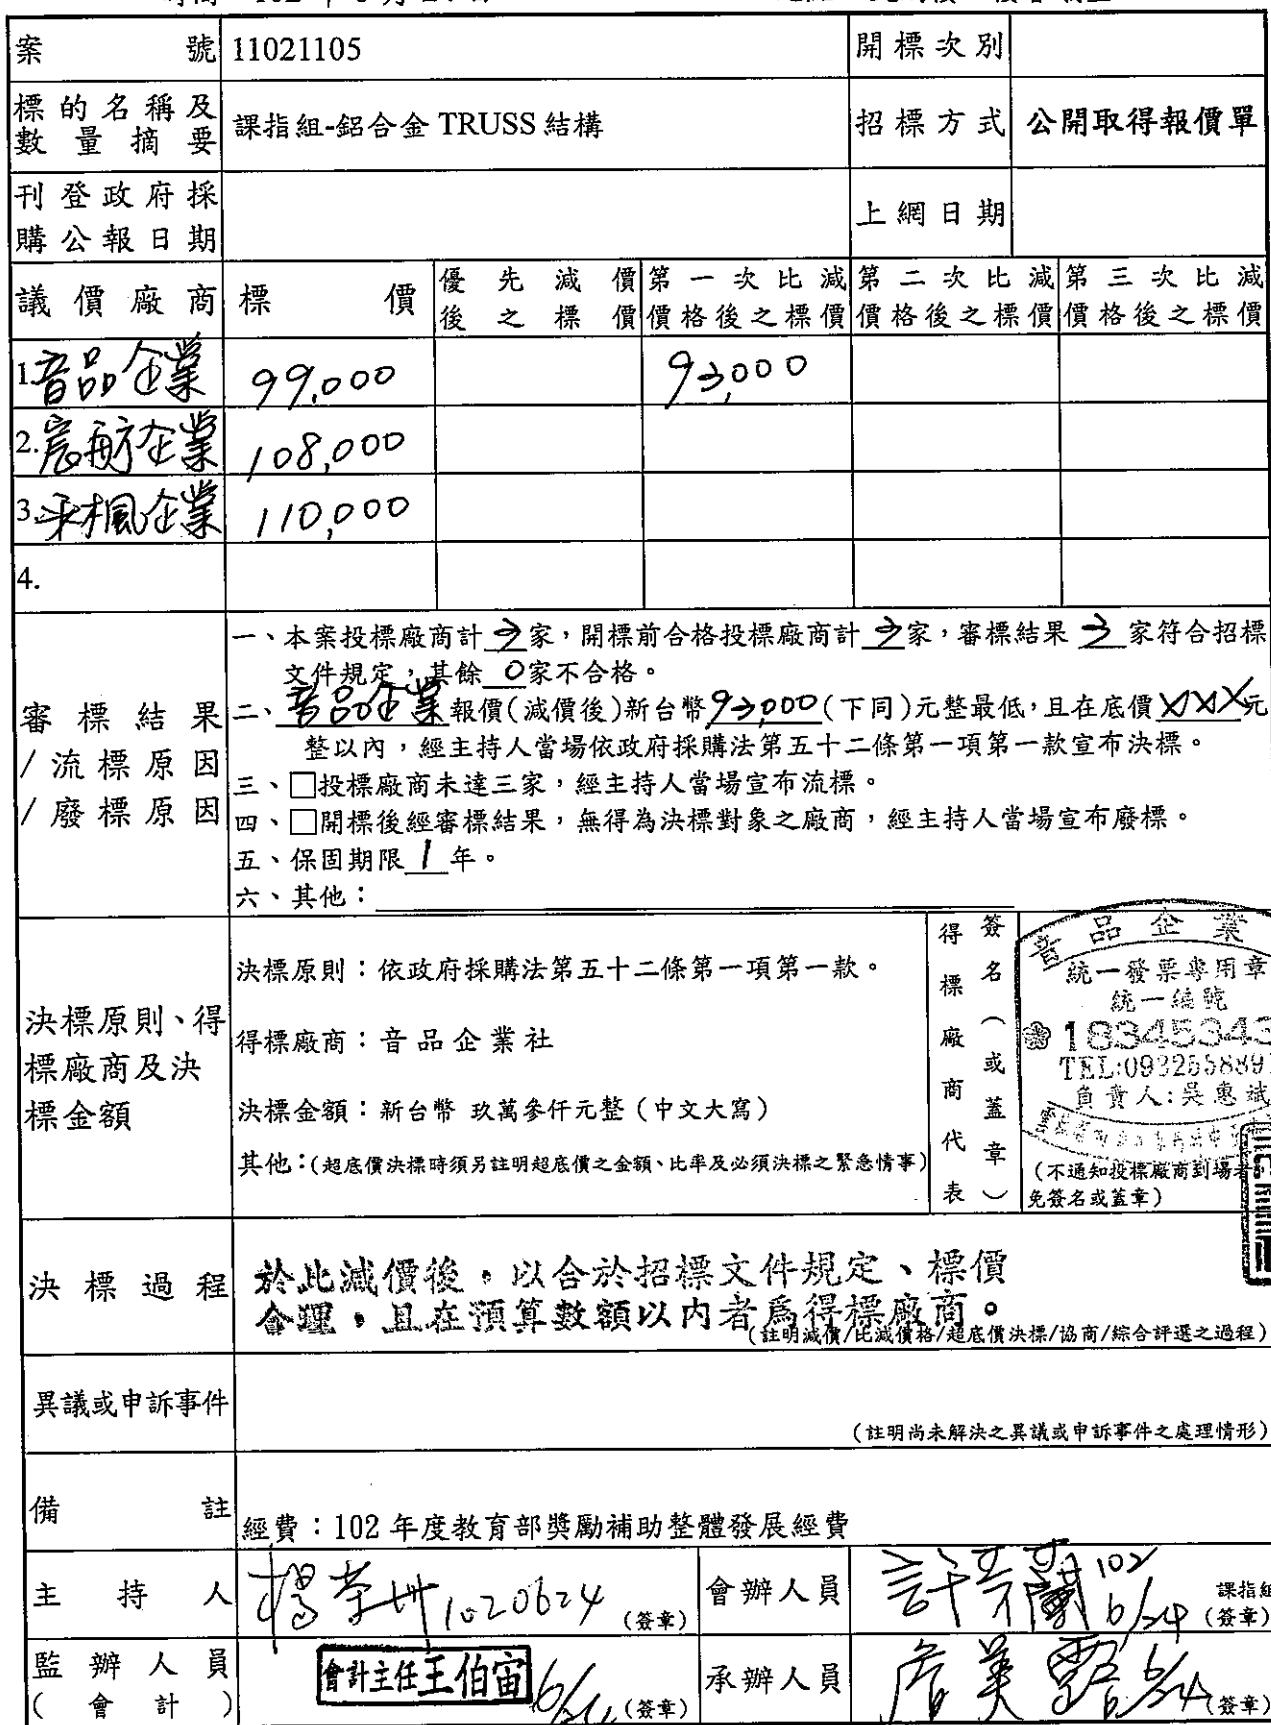 案號 11021105 開標次別
標的名稱及數量摘要 課指組-鋁合金 TRUSS 結構 招標方式 公開取得報價單
刊登政府採購公報日期 上網日期
議價廠商 標價 優先減價後之標價 第一次比減價格後之標價 第二次比減價格後之標價 第三次比減價格後之標價
1.音品企業 99,000 93,000
2.宸航企業 108,000
3.采楓企業 110,000
4.
審標結果/流標原因/廢標原因
一、本案投標廠商計 3 家，開標前合格投標廠商計 3 家，審標結果 3 家符合招標
文件規定，其餘 0 家不合格。
二、音品企業報價(減價後)新台幣93,000(下同)元整最低，且在底價XXX元
整以內，經主持人當場依政府採購法第五十二條第一項第一款宣布決標。
三、□投標廠商未達三家，經主持人當場宣布流標。
四、□開標後經審標結果，無得為決標對象之廠商，經主持人當場宣布廢標。
五、保固期限 1 年。
六、其他：
決標原則、得標廠商及決標金額
決標原則：依政府採購法第五十二條第一項第一款。
得標廠商：音品企業社
決標金額：新台幣 玖萬參仟元整（中文大寫）
其他：(超底價決標時須另註明超底價之金額、比率及必須決標之緊急情事)
得標廠商代表
簽名（或蓋章）
音品企業
統一發票專用章
統一編號
18345343
負責人:吳惠斌
(不通知投標廠商到場者
免簽名或蓋章)
決標過程
於比減價後，以合於招標文件規定、標價
合理，且在預算數額以內者為得標廠商。
(註明減價/比減價格/超底價決標/協商/綜合評選之過程)
異議或申訴事件
(註明尚未解決之異議或申訴事件之處理情形)
備註 經費：102 年度教育部獎勵補助整體發展經費
主持人 1020624 (簽章) 會辦人員 102 6/24 課指組 (簽章)
監辦人員(會計) 會計主任王伯宙 (簽章) 承辦人員 6/24 (簽章)